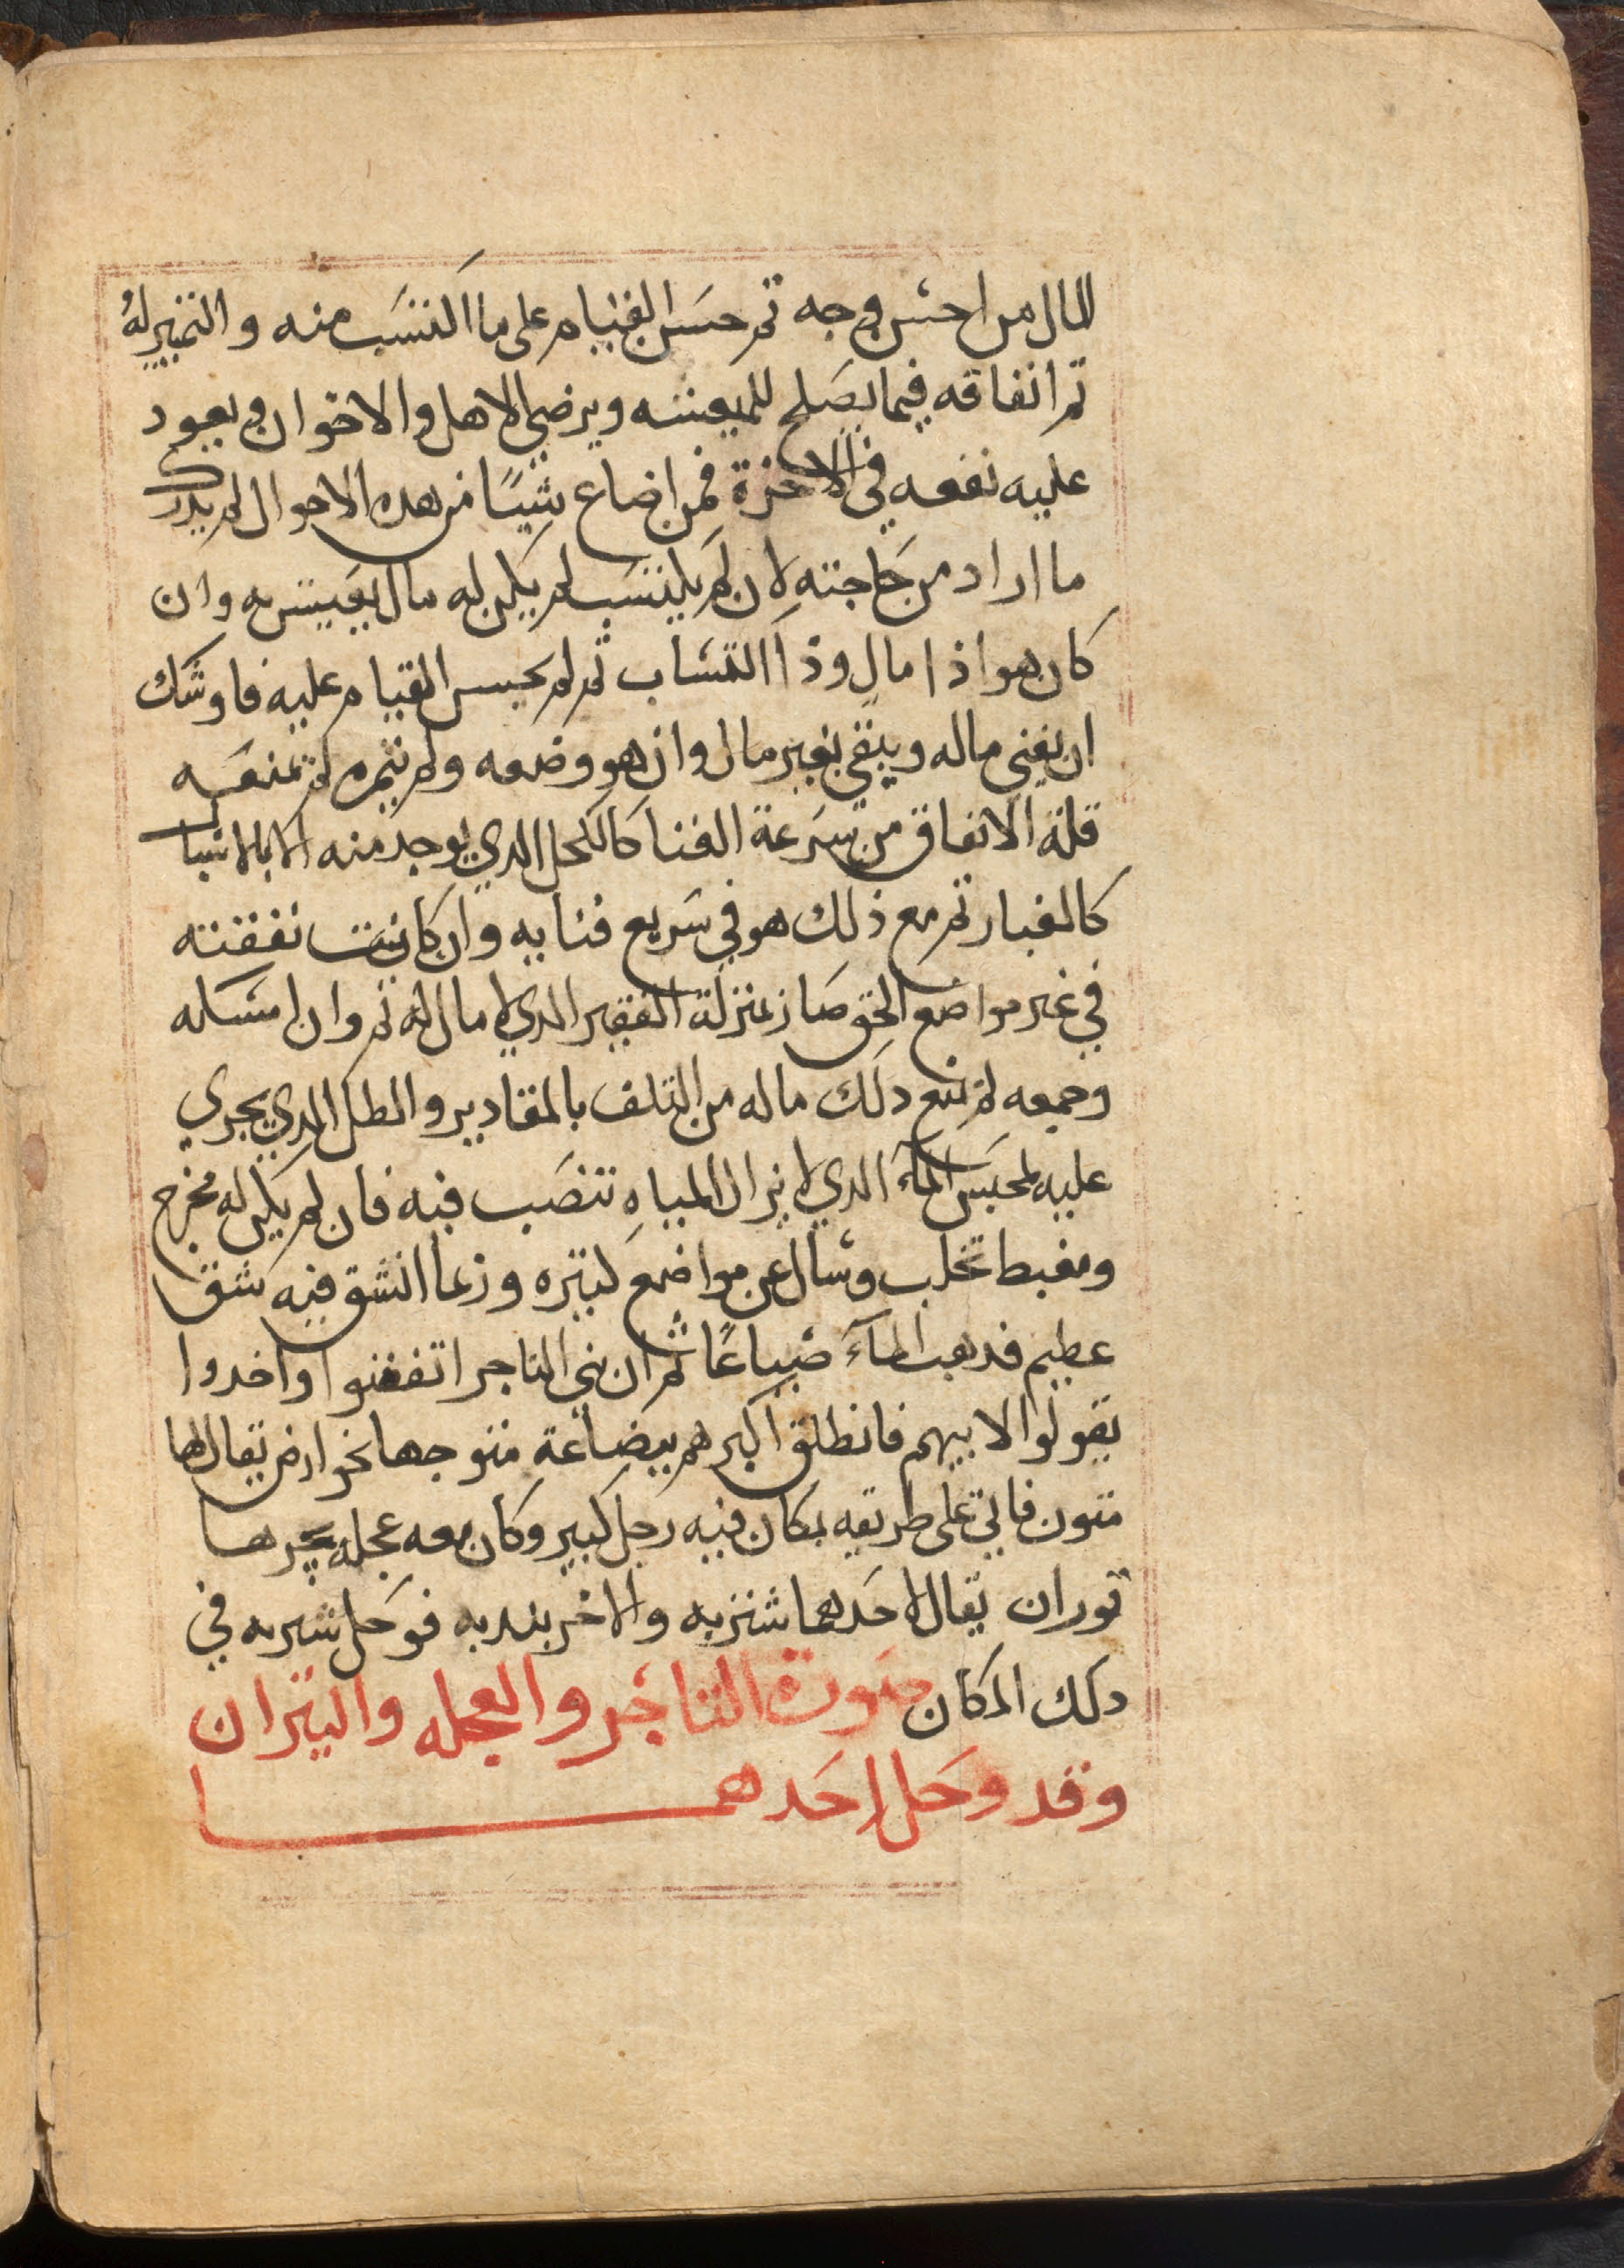 المال من احسن وجه ثم حسن القيام على ما اكتسب منه والتثمير له
ثم انفاقه فيما يصلح للمعيشه ويرضي الاهل والاخوان ويعود
عليه نفعه في الاخرة فمن اضاع شيئا من هده الاحوال لم يدرك
ما اراد من حاجته لان لم يكتسب لم يكن له مال يعيش به وان
كان هو اذا مال وذا اكتساب ثم لم يحسن القيام عليه فاوشك
ان يفني ماله ويبقى بغير مال وان هو وضعه ولم يثمره لم تمنعه
قلة الانفاق من سرعة الفنا كالكحل الدي يوجد منه الا بالاشيا
كالغبار ثم مع ذلك هو في سريع فنايه وان كانت نفقته
في غير مواضع الحق صار بمنزلة الفقير الدي لا مال له ثم وان امسكه
وجمعه لم يمنع دلك ماله من التلف بالمقادير والطل الدي يجري
عليه لمحبس المآء الدي لا يزال المياه تنصب فيه فان لم يكن له مخرج
ومغيط تحلب وسال عن مواضع كثيره وربما انشق فيه شق
عظيم فدهب المآء ضياعا ثم ان بني التاجر اتفضوا واخدوا
بقولوا لابيهم فانطلق اكبرهم ببضاعة متوجها نحو ارض يقال لها
متون فاتي على طريقه بمكان فيه رجل كبير وكان معه عجله يجرها
توران يقال لاحدهما شنزبه والاخر بندبه فوحل شربه في
دلك المكان صورة التاجر والعجله والثيران
وقد وحل احدهما